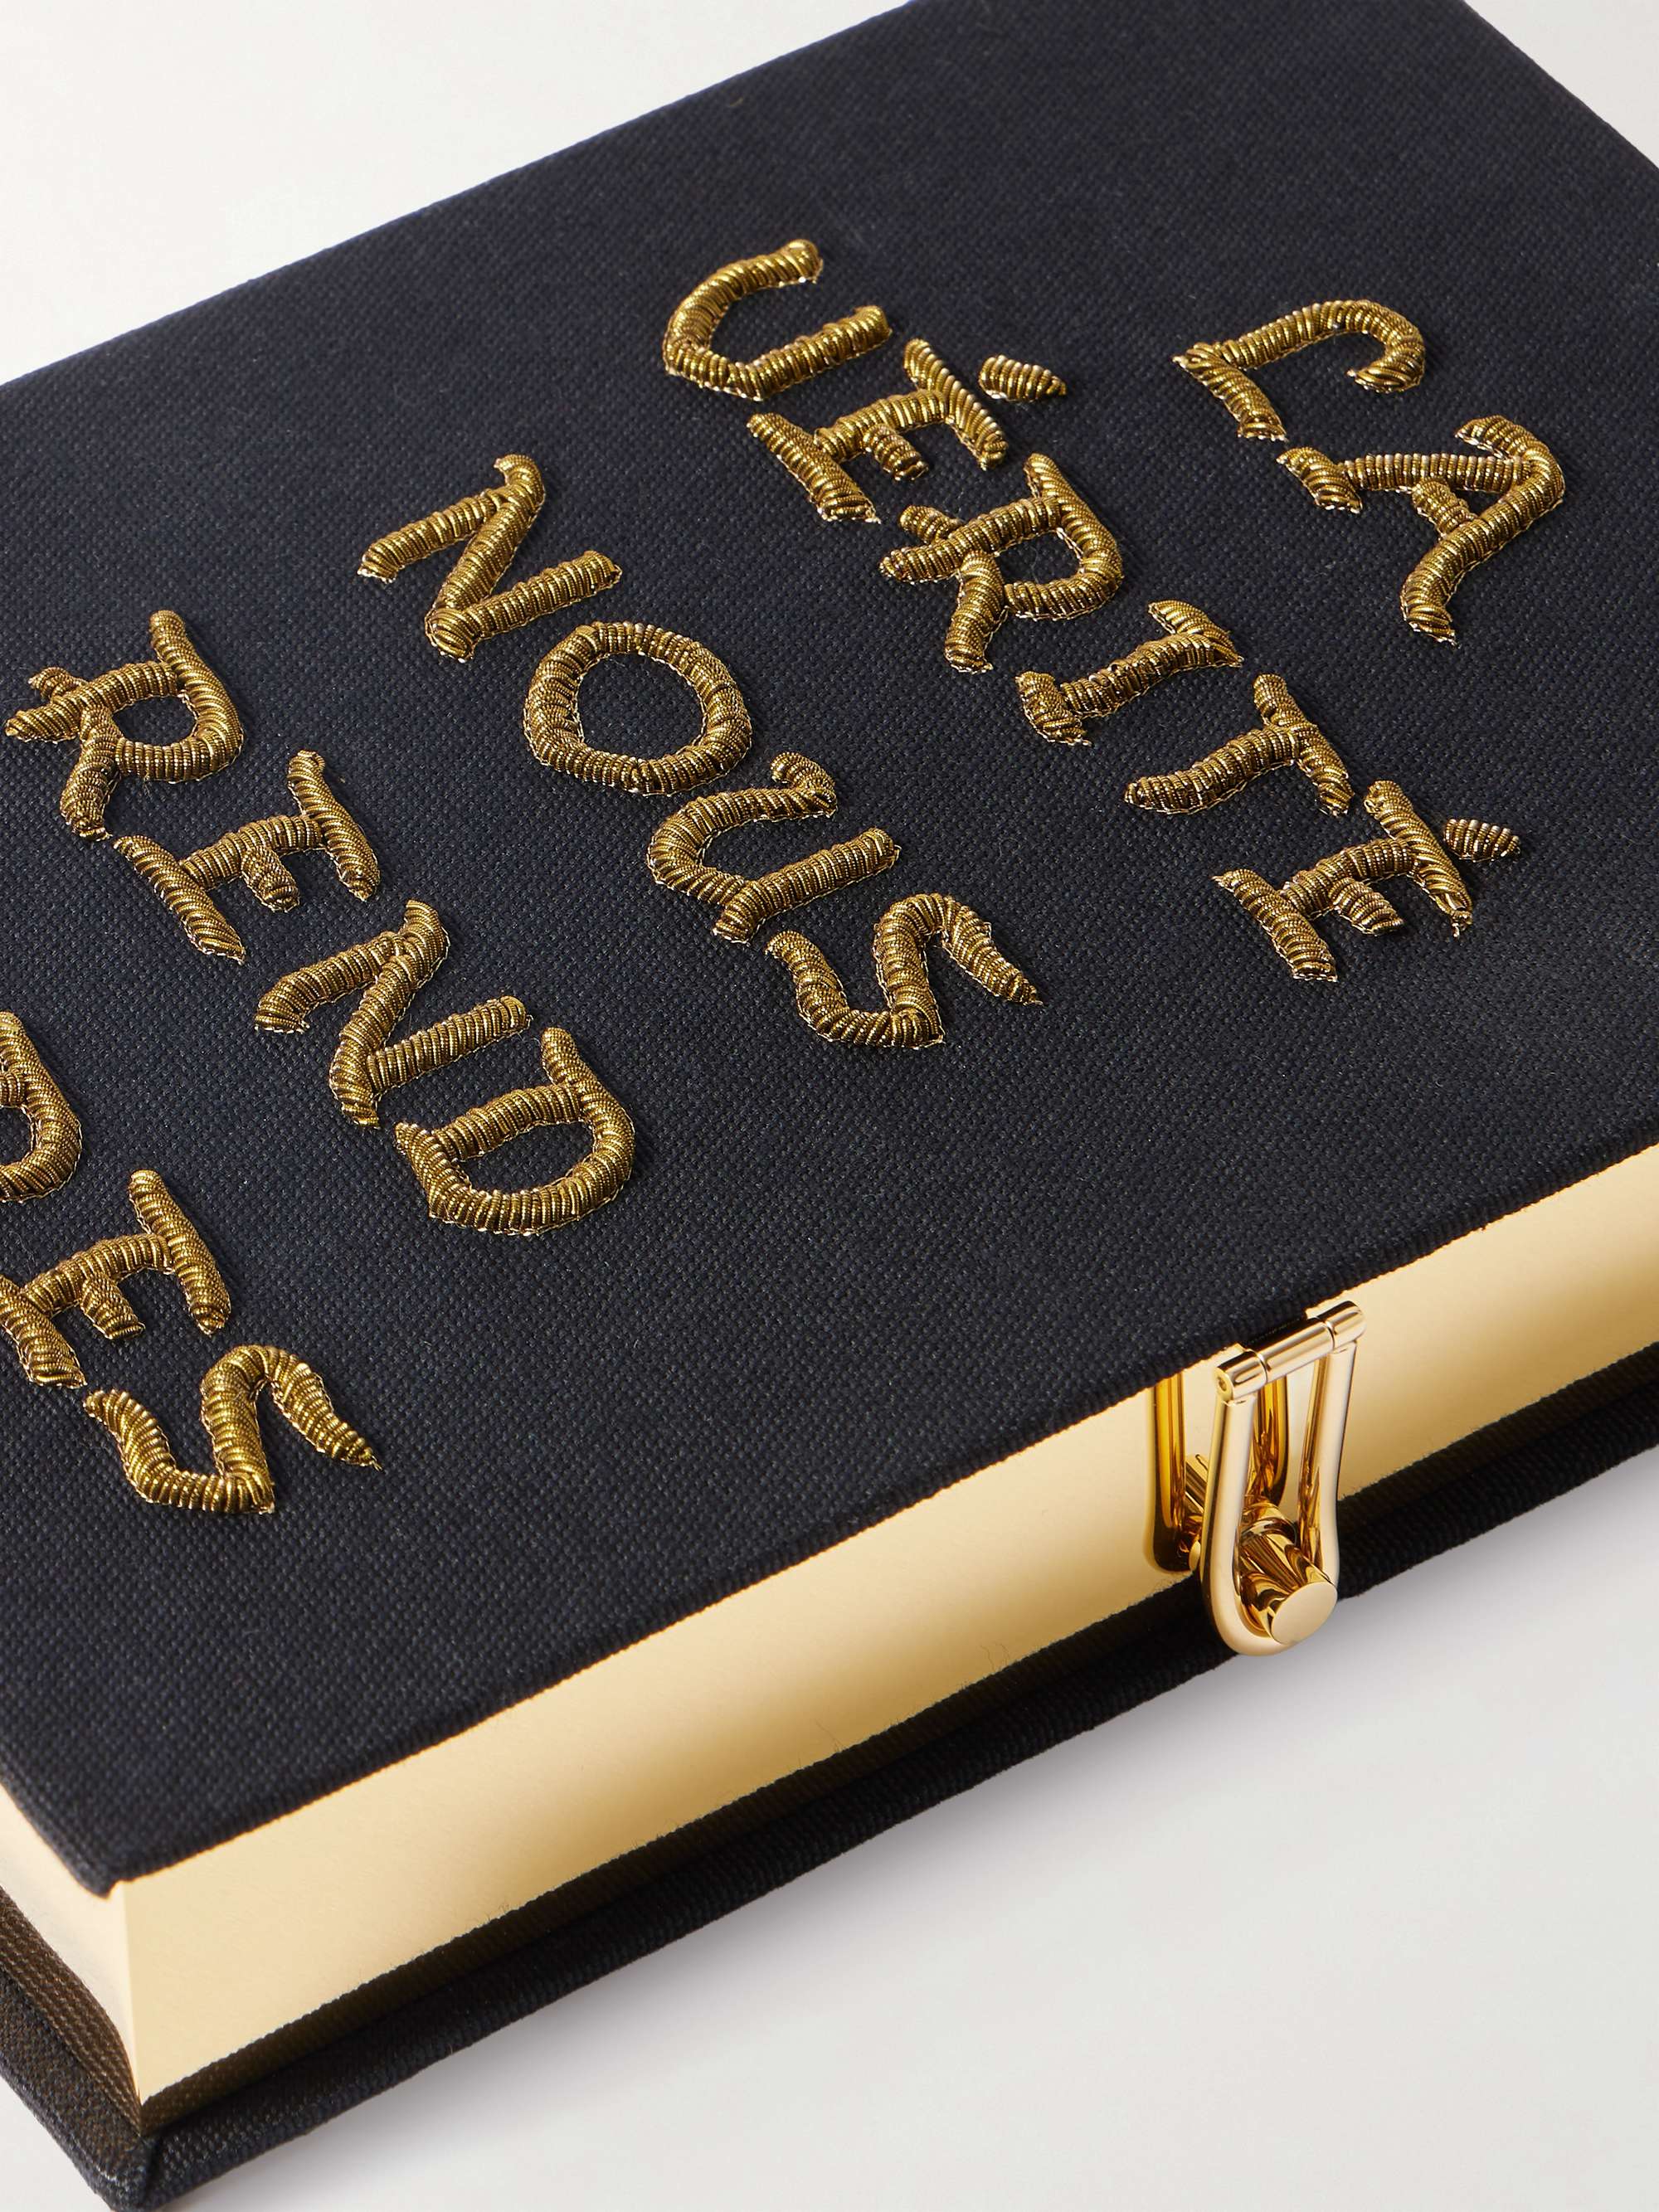 LA
VÉRITÉ
NOUS
REND